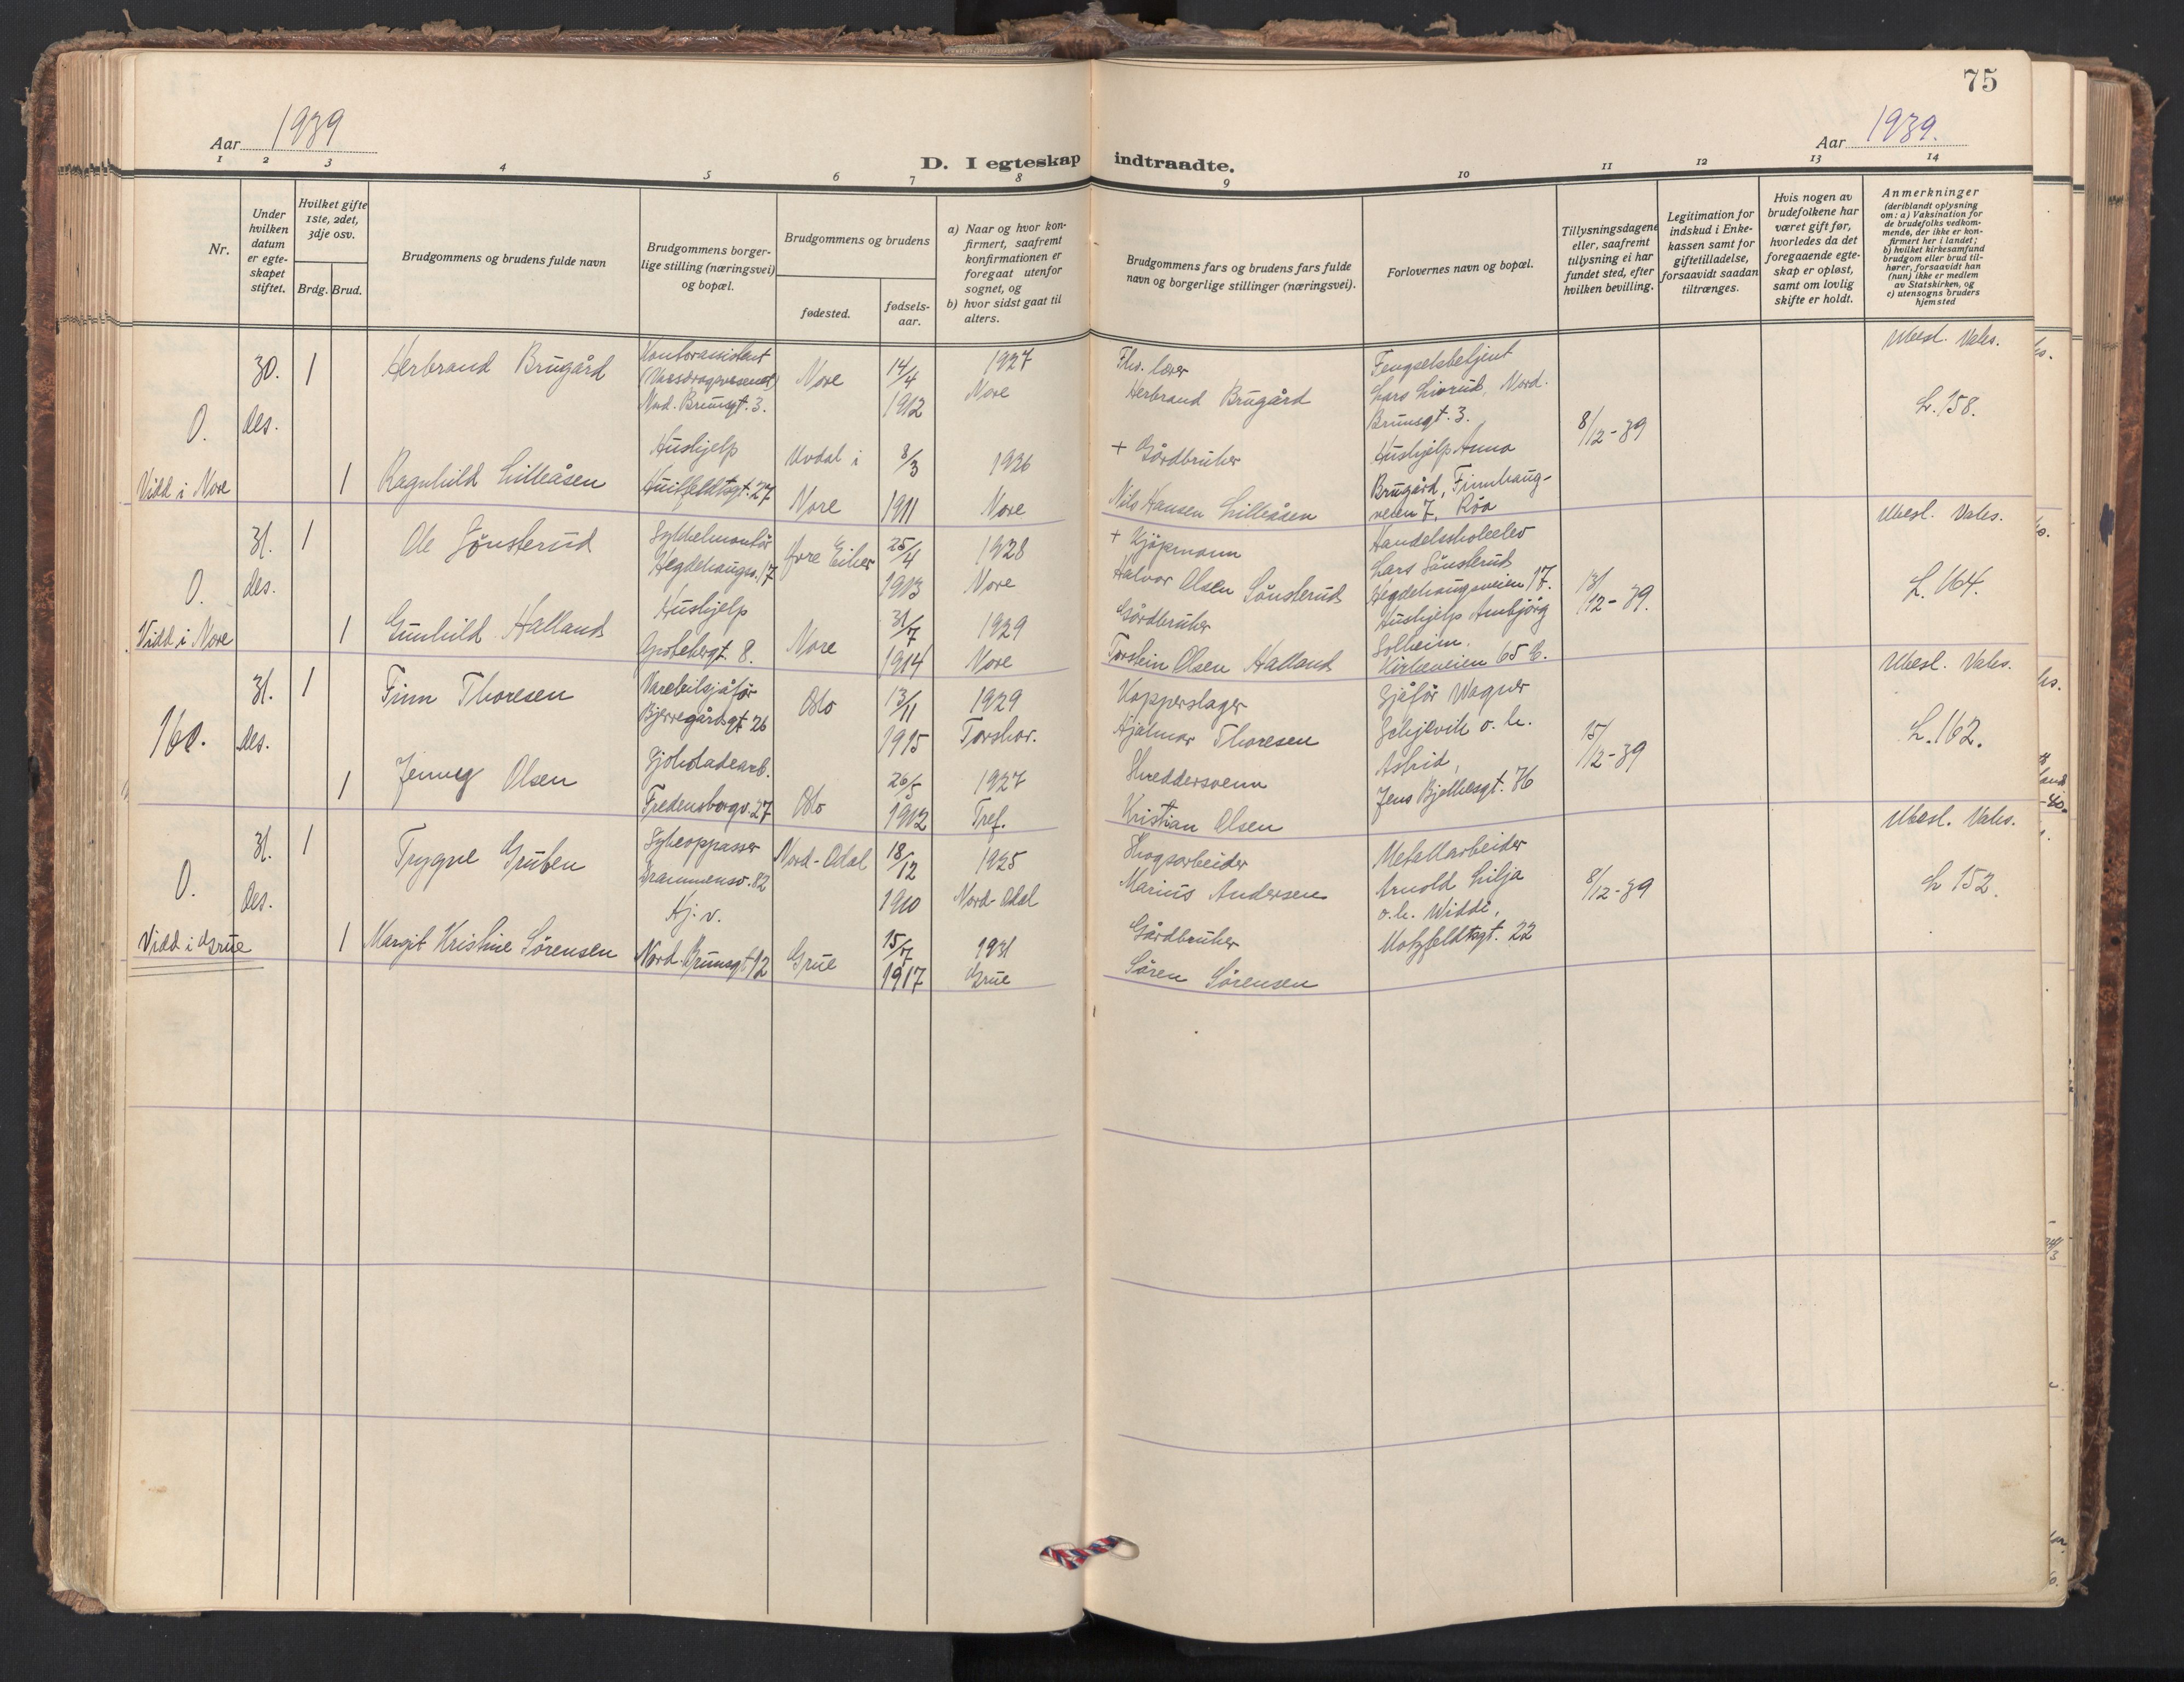 75
Aar 1939
Aar 1939.
D. I egteskap indtraadte.
1 2 3 4 5 6 7 8 9 10 11 12 13 14
Nr.
Under hvilken datum er egte- skapet stiftet.
Hvilket gifte 1ste, 2det, 3dje osv.
Brdg. Brud.
Brudgommens og brudens fulde navn
Brudgommens borger- lige stilling (næringsvei) og bopæl.
Brudgommens og brudens
fødested.
fødsels- aar.
a) Naar og hvor kon- firmert, saafremt konfirmationen er foregaat utenfor sognet, og
b) hvor sidst gaat til alters.
Brudgommens fars og brudens fars fulde navn og borgerlige stillinger (næringsvei).
Forlovernes navn og bopæl.
Tillysningsdagene eller, saafremt tillysning ei har fundet sted, efter hvilken bevilling.
Legitimation for indskud i Enke- kassen samt for giftetilladelse, forsaavidt saadan tiltrænges.
Hvis nogen av brudefolkene har været gift før, hvorledes da det foregaaende egte- skap er opløst, samt om lovlig skifte er holdt.
Anmerkninger (deriblandt oplysning om: a) Vaksination for de brudefolks vedkom- mende, der ikke er kon- firmert her i landet; b) hvilket kirkesamfund brudgom eller brud til- hører, forsaavidt han (hun) ikke er medlem av Statskirken, og c) utensogns bruders hjemsted
0.
30. des.
1
Herbrand Brugård
Kontorassistent
(Vassdragsvesenet)
Nord. Brunsgt. 3.
Nore
14/4 1912
1927
Nore
Fhv. lærer
Herbrand Brugård
Fengselsbetjent
Lars Livrud, Nord.
Brunsgt. 3.
Hushjelp Anna
Brugård, Finnhaug-
veien 7, Röa
8/12-39
Ubesl. Vaks.
L. 158.
Vidd i Nore
1
Ragnhild Lilleåsen
Hushjelp
Huitfeldtsgt. 27
Uvdal i
Nore
8/3 1911
1926
Nore
+ Gårdbruker
Nils Hansen Lilleåsen
0.
31. des.
1
Ole Sønsterud
Sykkelmontör
Hegdehaugsv. 17
Øvre Eiker
25/4 1913
1928
Nore
+ Kjöpmann
Halvor Olsen Sönsterud
Handelsskoleelev
Lars Sönsterud
Hegdehaugsveien 17.
Hushjelp Ambjörg
Solheim,
Kirkeveien 65 B.
13/12-39.
Ubesl. Vaks.
L. 164.
Vidd i Nore
1
Gunhild Halland
Hushjelp
8.
Nore
31/7 1914
1929
Nore
Gårdbruker
Torstein Olsen Halland
160.
31. des.
1
Finn Thoresen
Varebilsjåför
Bjerregårdsgt 26
Oslo
13/11 1915
1929
Torshov.
Kopperslager
Hjalmar Thoresen
Sjåför Wagner
Schjevik o. h.
Astrid,
Jens Bjelkesgt. 76
15/12-39
Ubesl. Vaks.
L. 162.
1
Jenny Olsen
Sjokoladearb.
Fredensborgv. 27
Oslo
26/5 1912
1927
Tref.
Skreddersvenn
Kristian Olsen
0.
31. des.
1
Trygve Gruben
Sykeoppasser
Drammensv. 82
Nord-Odal
18/12 1910
1925
Nord-Odal
Skogsarbeider
Marius Andersen
Metallarbeider
Arnold Lilja
o. h. Widdi,
Motzfeldtsgt. 22
8/12-39
Ubesl. Vaks.
L 152.
Vidd i Grue
1
Margit Kristine Sörensen
Hj. v.
Nord. Brunsgt 12
Grue
15/7 1917
1931
Grue
Gårdbruker
Sören Sörensen